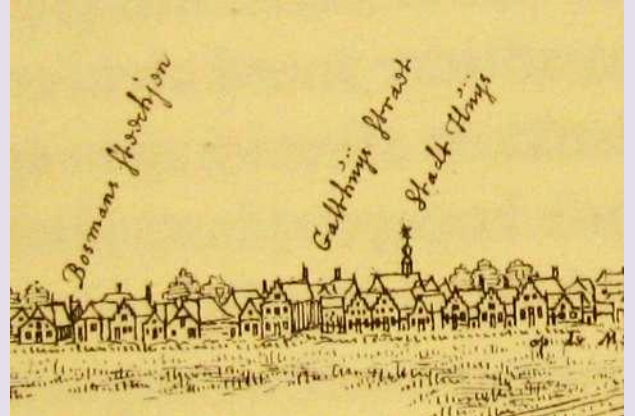 Bosmans Steechjen
Gasthüys Straat
Stadt Hüys
op de M